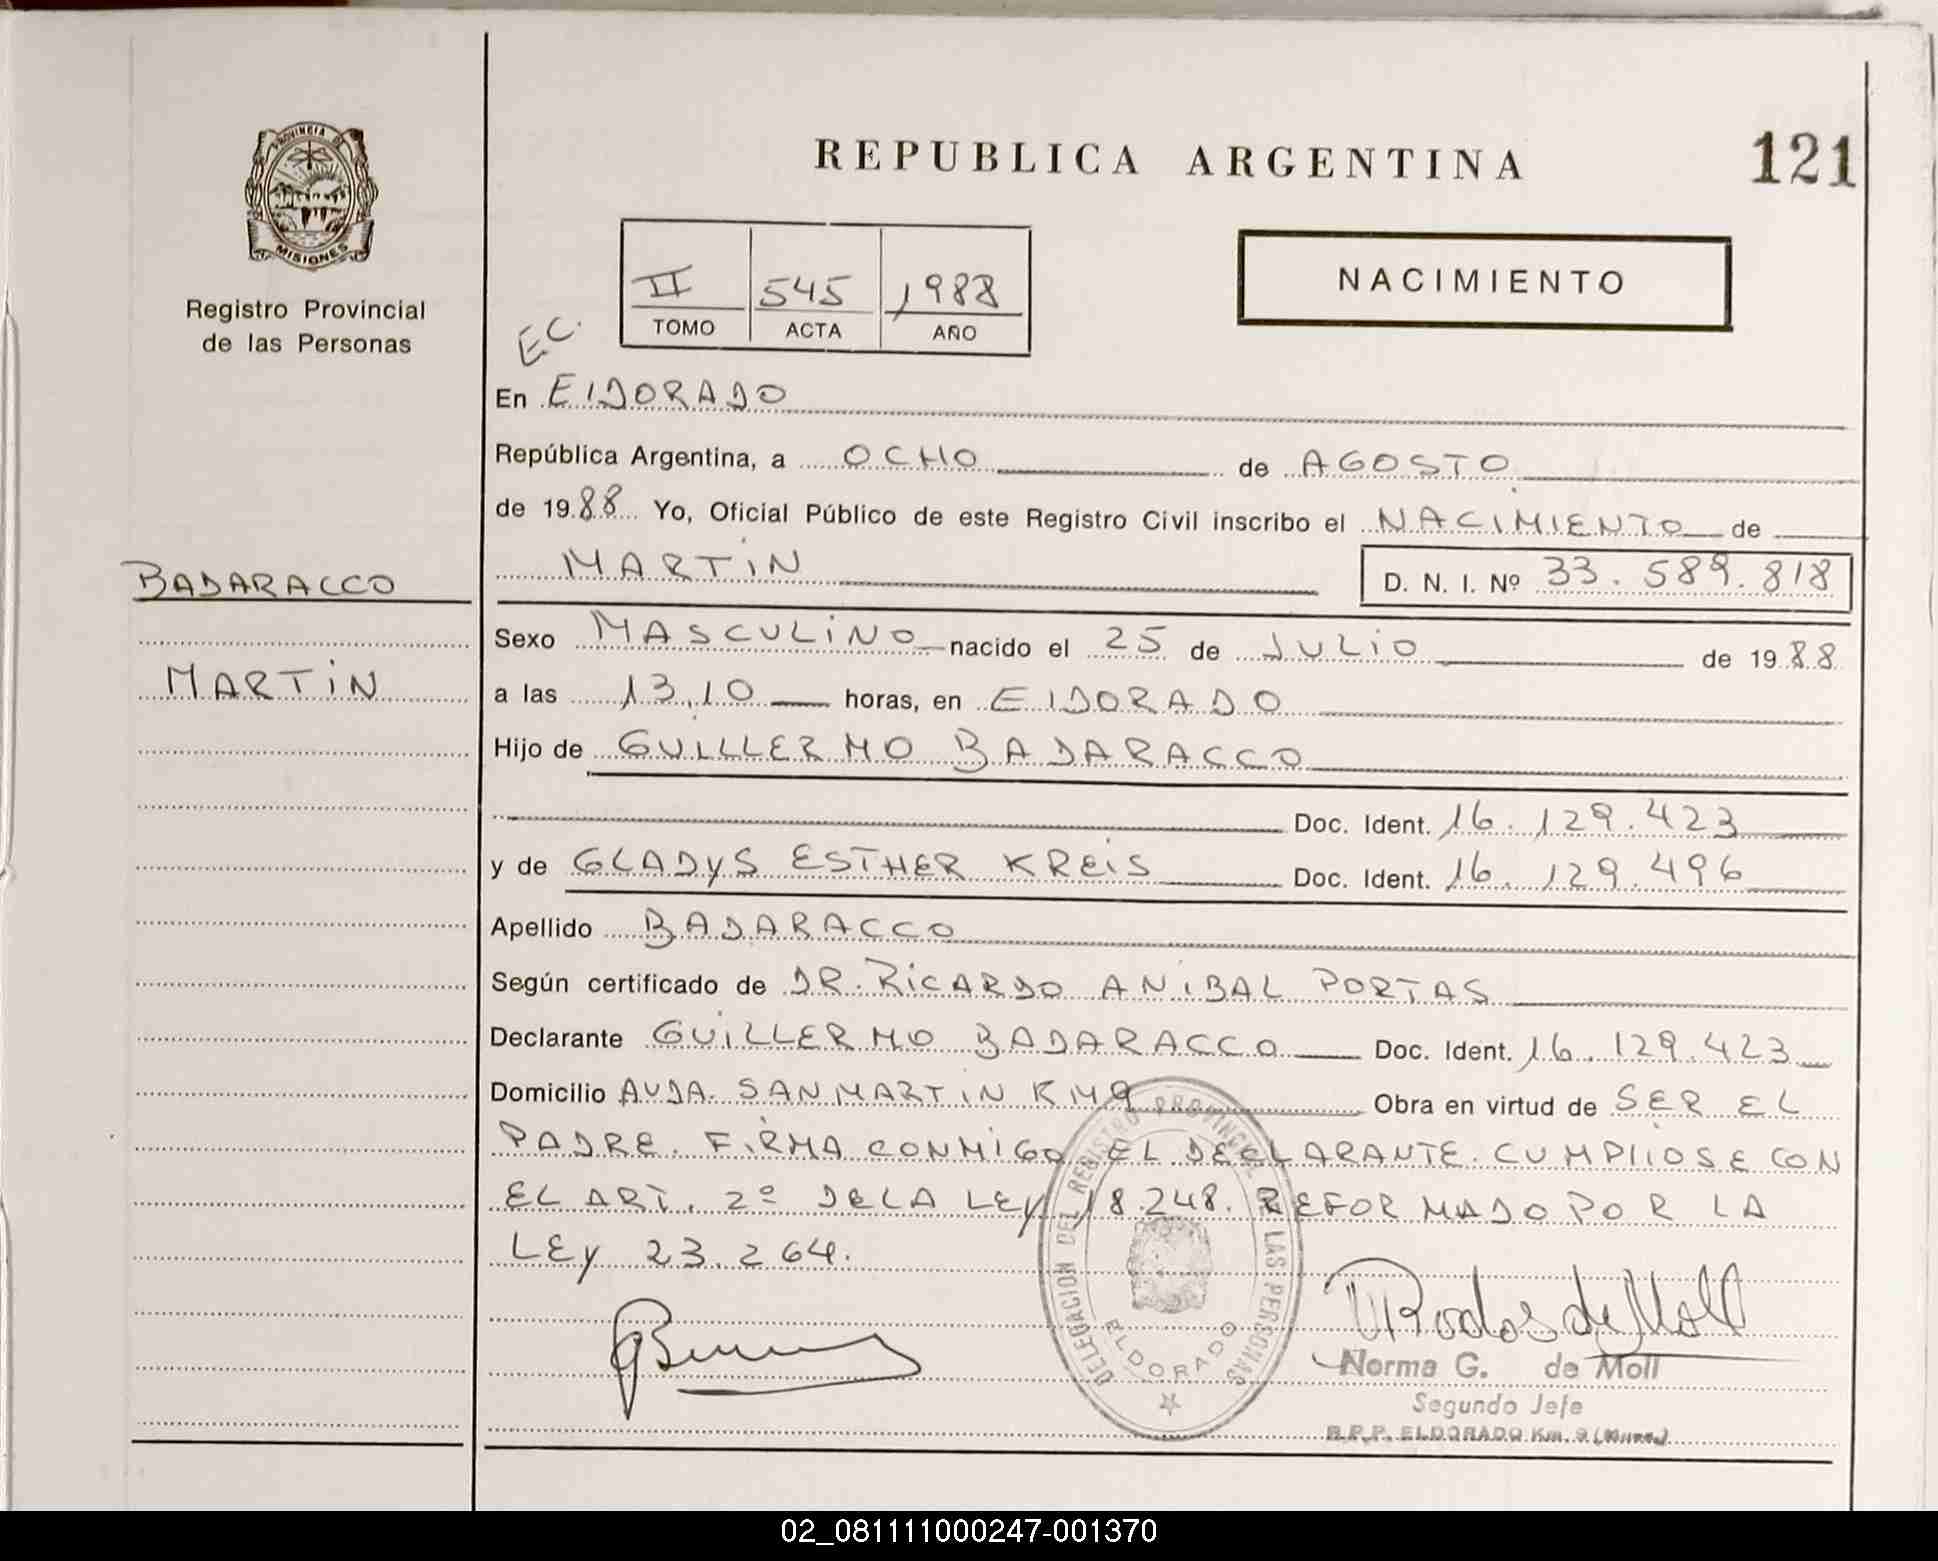 REPUBLICA ARGENTINA
121
PROVINCIA DE
MISIONES
Registro Provincial
de las Personas
II 545 1988
TOMO ACTA AÑO
NACIMIENTO
EC.
En ElDORADO
República Argentina, a OCHO de AGOSTO
de 1988 Yo, Oficial Público de este Registro Civil inscribo el NACIMIENTO de
MARTIN D. N. I. Nº 33.589.818
BADARACCO
Sexo MASCULINO nacido el 25 de JULIO de 1988
MARTIN
a las 13,10 horas, en ElDORADO
Hijo de GUILLERMO BADARACCO
Doc. Ident. 16.129.423
y de GLADYS ESTHER KREIS Doc. Ident. 16.129.496
Apellido BADARACCO
Según certificado de DR. RICARDO ANIBAL PORTAS
Declarante GUILLERMO BADARACCO Doc. Ident. 16.129.423
Domicilio AVDA. SAN MARTIN KM 9 Obra en virtud de SER EL
PADRE. FIRMA CONMIGO EL DECLARANTE. CUMPlIOSE CON
EL ART. 2º DE LA LEY 18.248. REFORMADO POR LA
LEY 23.264.
DELEGACION DEL REGISTRO PROVINCIAL DE LAS PERSONAS
ELDORADO
Norma G. de Moll
Segundo Jefe
R.P.P. ELDORADO Km. 9
02_081111000247-001370